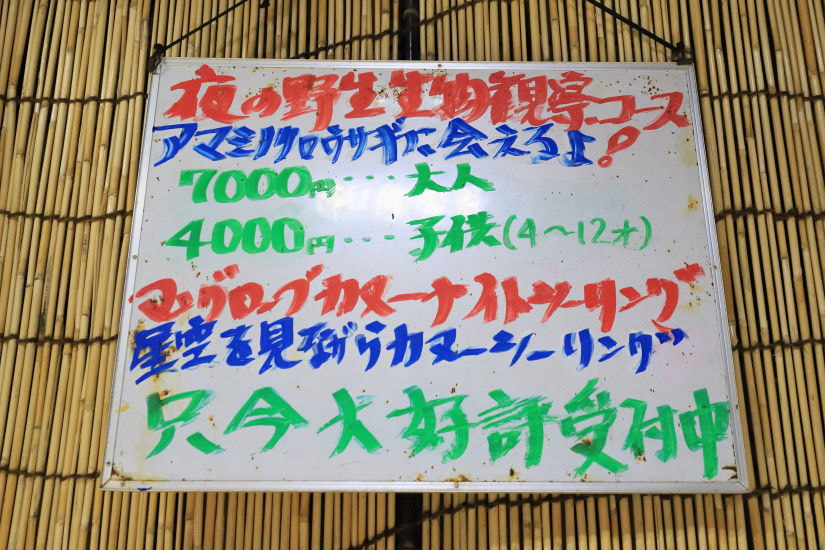 夜の野生生物観察コース
アマミノクロウサギに会えるよ!
7000円・・・大人
4000円・・・子供(4〜12才)
マングローブカヌーナイトツーリング
星空を見ながらカヌーツーリング
只今大好評受付中